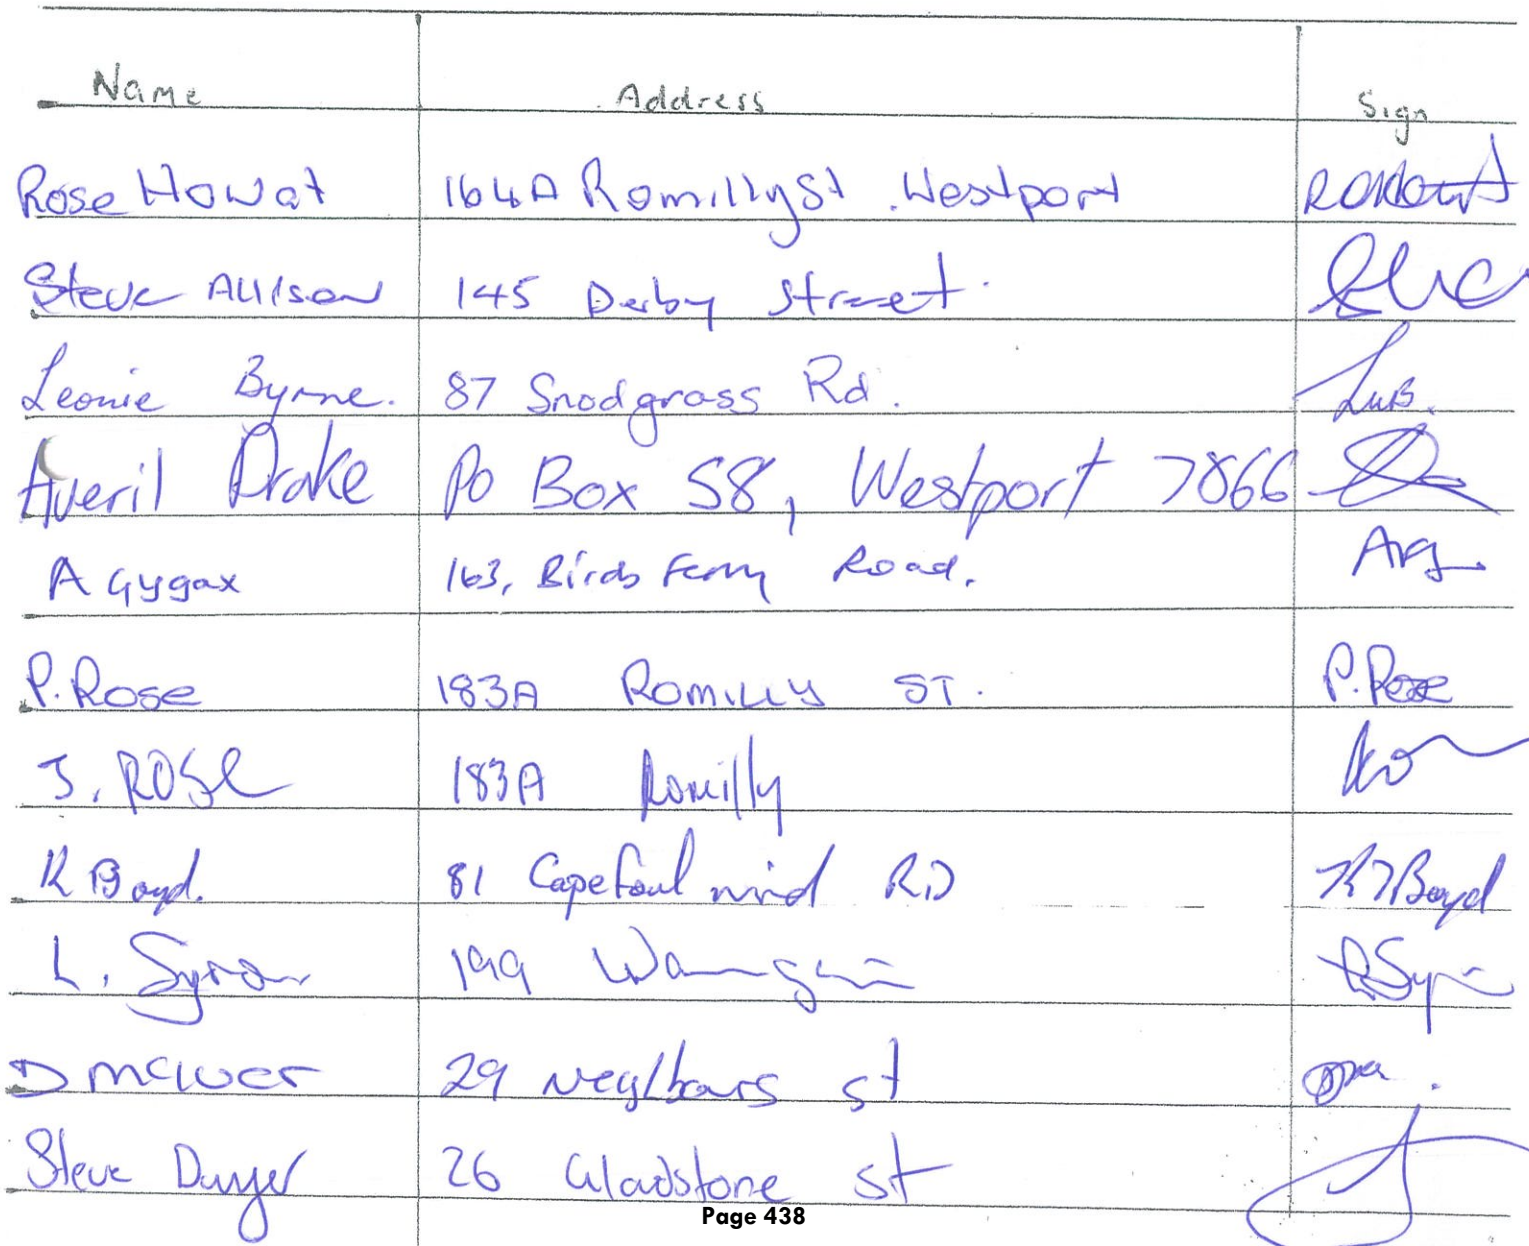 Name Address Sign
Rose Howat 164A Romilly St. Westport
Steve Allison 145 Derby Street.
Leonie Byrne. 87 Snodgrass Rd.
Averil Drake PO Box 58, Westport 7866
A Gygax 163, Birds Ferry Road.
P. Rose 183A Romilly ST. P. Rose
J. Rose 183A Romilly
K Boyd. 81 Cape foul wind RD Boyd
L. 199
D 29 st
Steve Dwyer 26 Gladstone st
Page 438